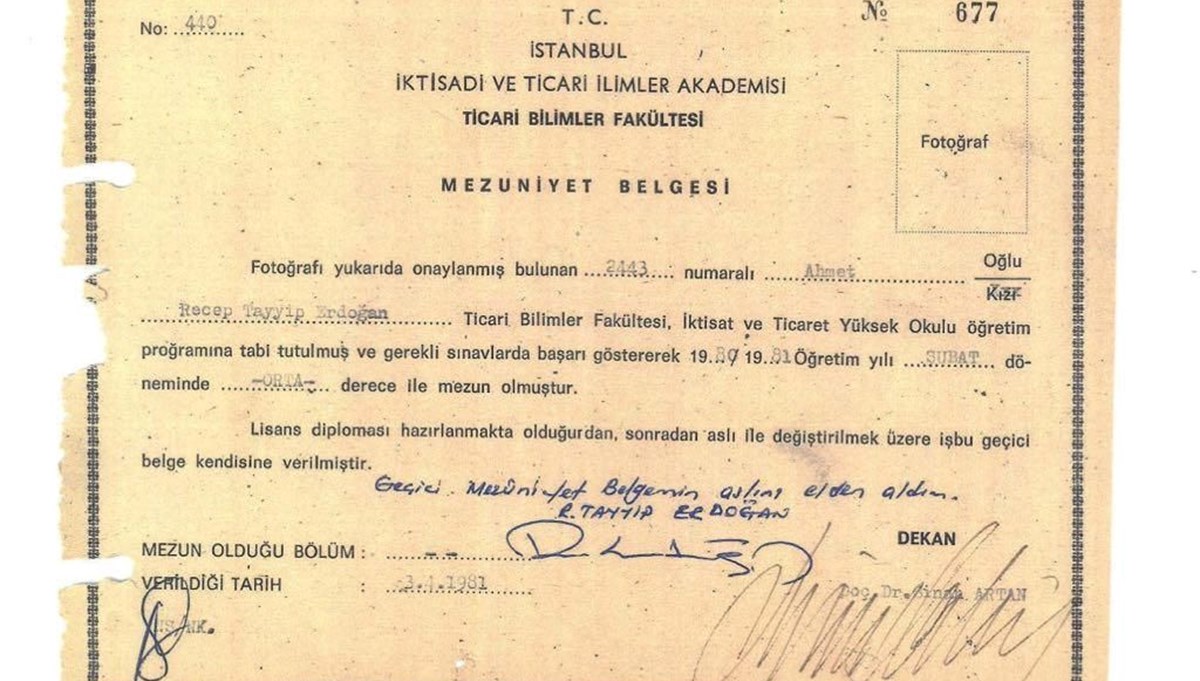 No: 440
T.C.
№ 677
İSTANBUL
İKTİSADİ VE TİCARİ İLİMLER AKADEMİSİ
TİCARİ BİLİMLER FAKÜLTESİ
Fotoğraf
MEZUNİYET BELGESİ
Fotoğrafı yukarıda onaylanmış bulunan 2443 numaralı Ahmet Oğlu
Kızı
Recep Tayyip Erdoğan Ticari Bilimler Fakültesi, İktisat ve Ticaret Yüksek Okulu öğretim
programına tabi tutulmuş ve gerekli sınavlarda başarı göstererek 19 80/ 19 81 Öğretim yılı ŞUBAT dö-
neminde -ORTA- derece ile mezun olmuştur.
Lisans diploması hazırlanmakta olduğurdan, sonradan aslı ile değiştirilmek üzere işbu geçici
belge kendisine verilmiştir.
Geçici Mezûniyet Belgemin aslını elden aldım.
R.TAYYİP ERDOĞAN
MEZUN OLDUĞU BÖLÜM : --
DEKAN
VERİLDİĞİ TARİH : 3.4.1981
Doç.Dr.Sinan ARTAN